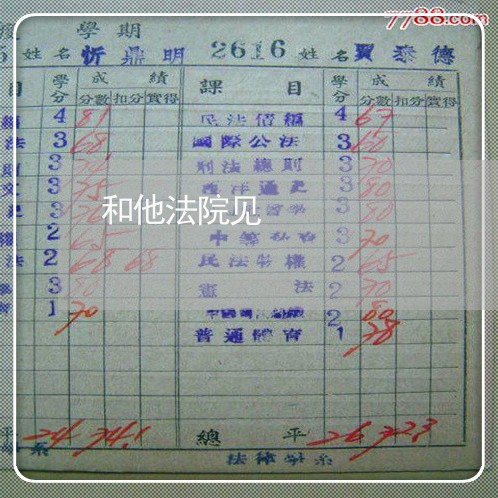 7788.com
學期
5 姓名 忻鼎明 2616 姓名 賈泰德
目 學分 成績 課目 學分 成績
分數 扣分 實得 分數 扣分 實得
4 81 民法債編 4 67
法 3 68 國際公法 3 60
則 3 刑法總則 3 70
3 75 西洋通史 3 80
3 3 80
和他法院见
2 65 3 70
法 2 68 68 民法物權 2 65
3 80 憲法 2 70
1 70 2 80
普通體育 1 78
平 24 74.1 總平 26 72.3
系 法律學系